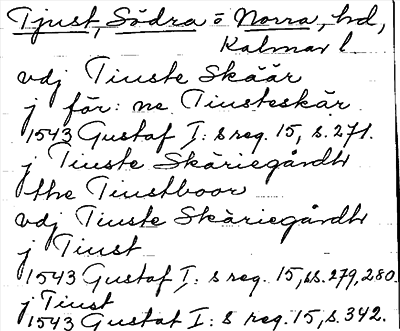 Tjust, Södra o Norra, hd,
Kalmar l
vdj Tiuste Skäär
j för: ne Tiusteskär
1543 Gustaf I: s reg. 15, s. 271.
j Tiuste Skäriegårdh
the Tiustboor
vdj Tiuste Skäriegårdh
j Tiust
1543 Gustaf I: s reg. 15, ss. 279, 280.
j Tiust
1543 Gustaf I: s reg. 15, s. 342.